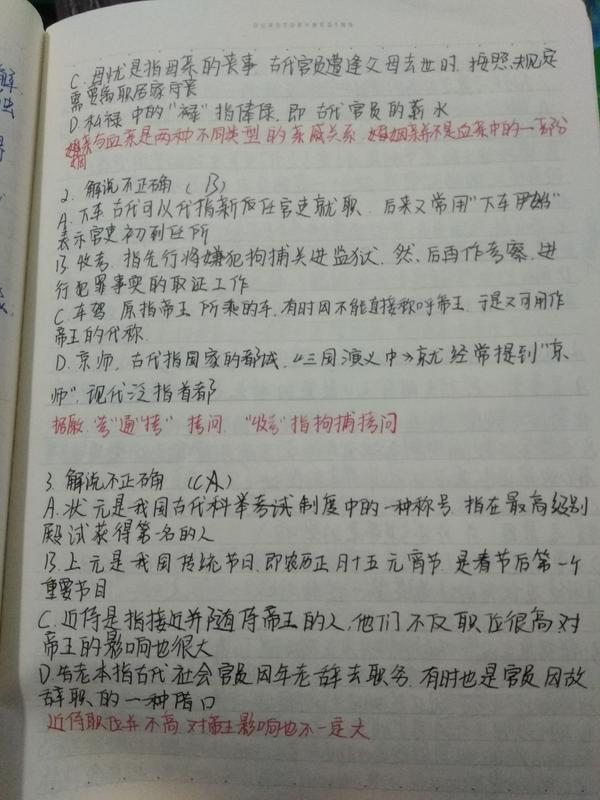 C. 母忧是指母亲的丧事 古代官员遭逢父母去世时. 按照规定
需要离职居家守丧
D. 私禄中的"禄"指俸禄. 即古代官员的薪水
姻亲与血亲是两种不同类型的亲戚关系. 姻亲并不是血亲中的一部分
2. 解说不正确 (B)
A. 下车 古代可以代指新任官吏就职. 后来又常用"下车伊始"
表示官吏初到任所
B. 收考. 指先行将嫌犯拘捕关进监狱. 然后再作考察. 进
行犯罪事实的取证工作
C. 车驾. 原指帝王所乘的车. 有时因不能直接称呼帝王. 于是又可用作
帝王的代称.
D. 京师. 古代指国家的都城. 《三国演义中》就经常提到"京
师". 现代泛指首都
据厥. "考"通"拷" 拷问. "收考"指拘捕拷问
3. 解说不正确 (CA)
A. 状元是我国古代科举考试制度中的一种称号. 指在最高级别
殿试获得第一名的人
B. 上元是我国传统节日. 即农历正月十五元宵节. 是春节后第一个
重要节日
C. 近侍是指接近并随侍帝王的人, 他们不仅职位很高, 对
帝王的影响也很大
D. 告老本指古代社会官员因年老辞去职务. 有时也是官员因故
辞职的一种借口
近侍职位并不高. 对帝王影响也不一定大